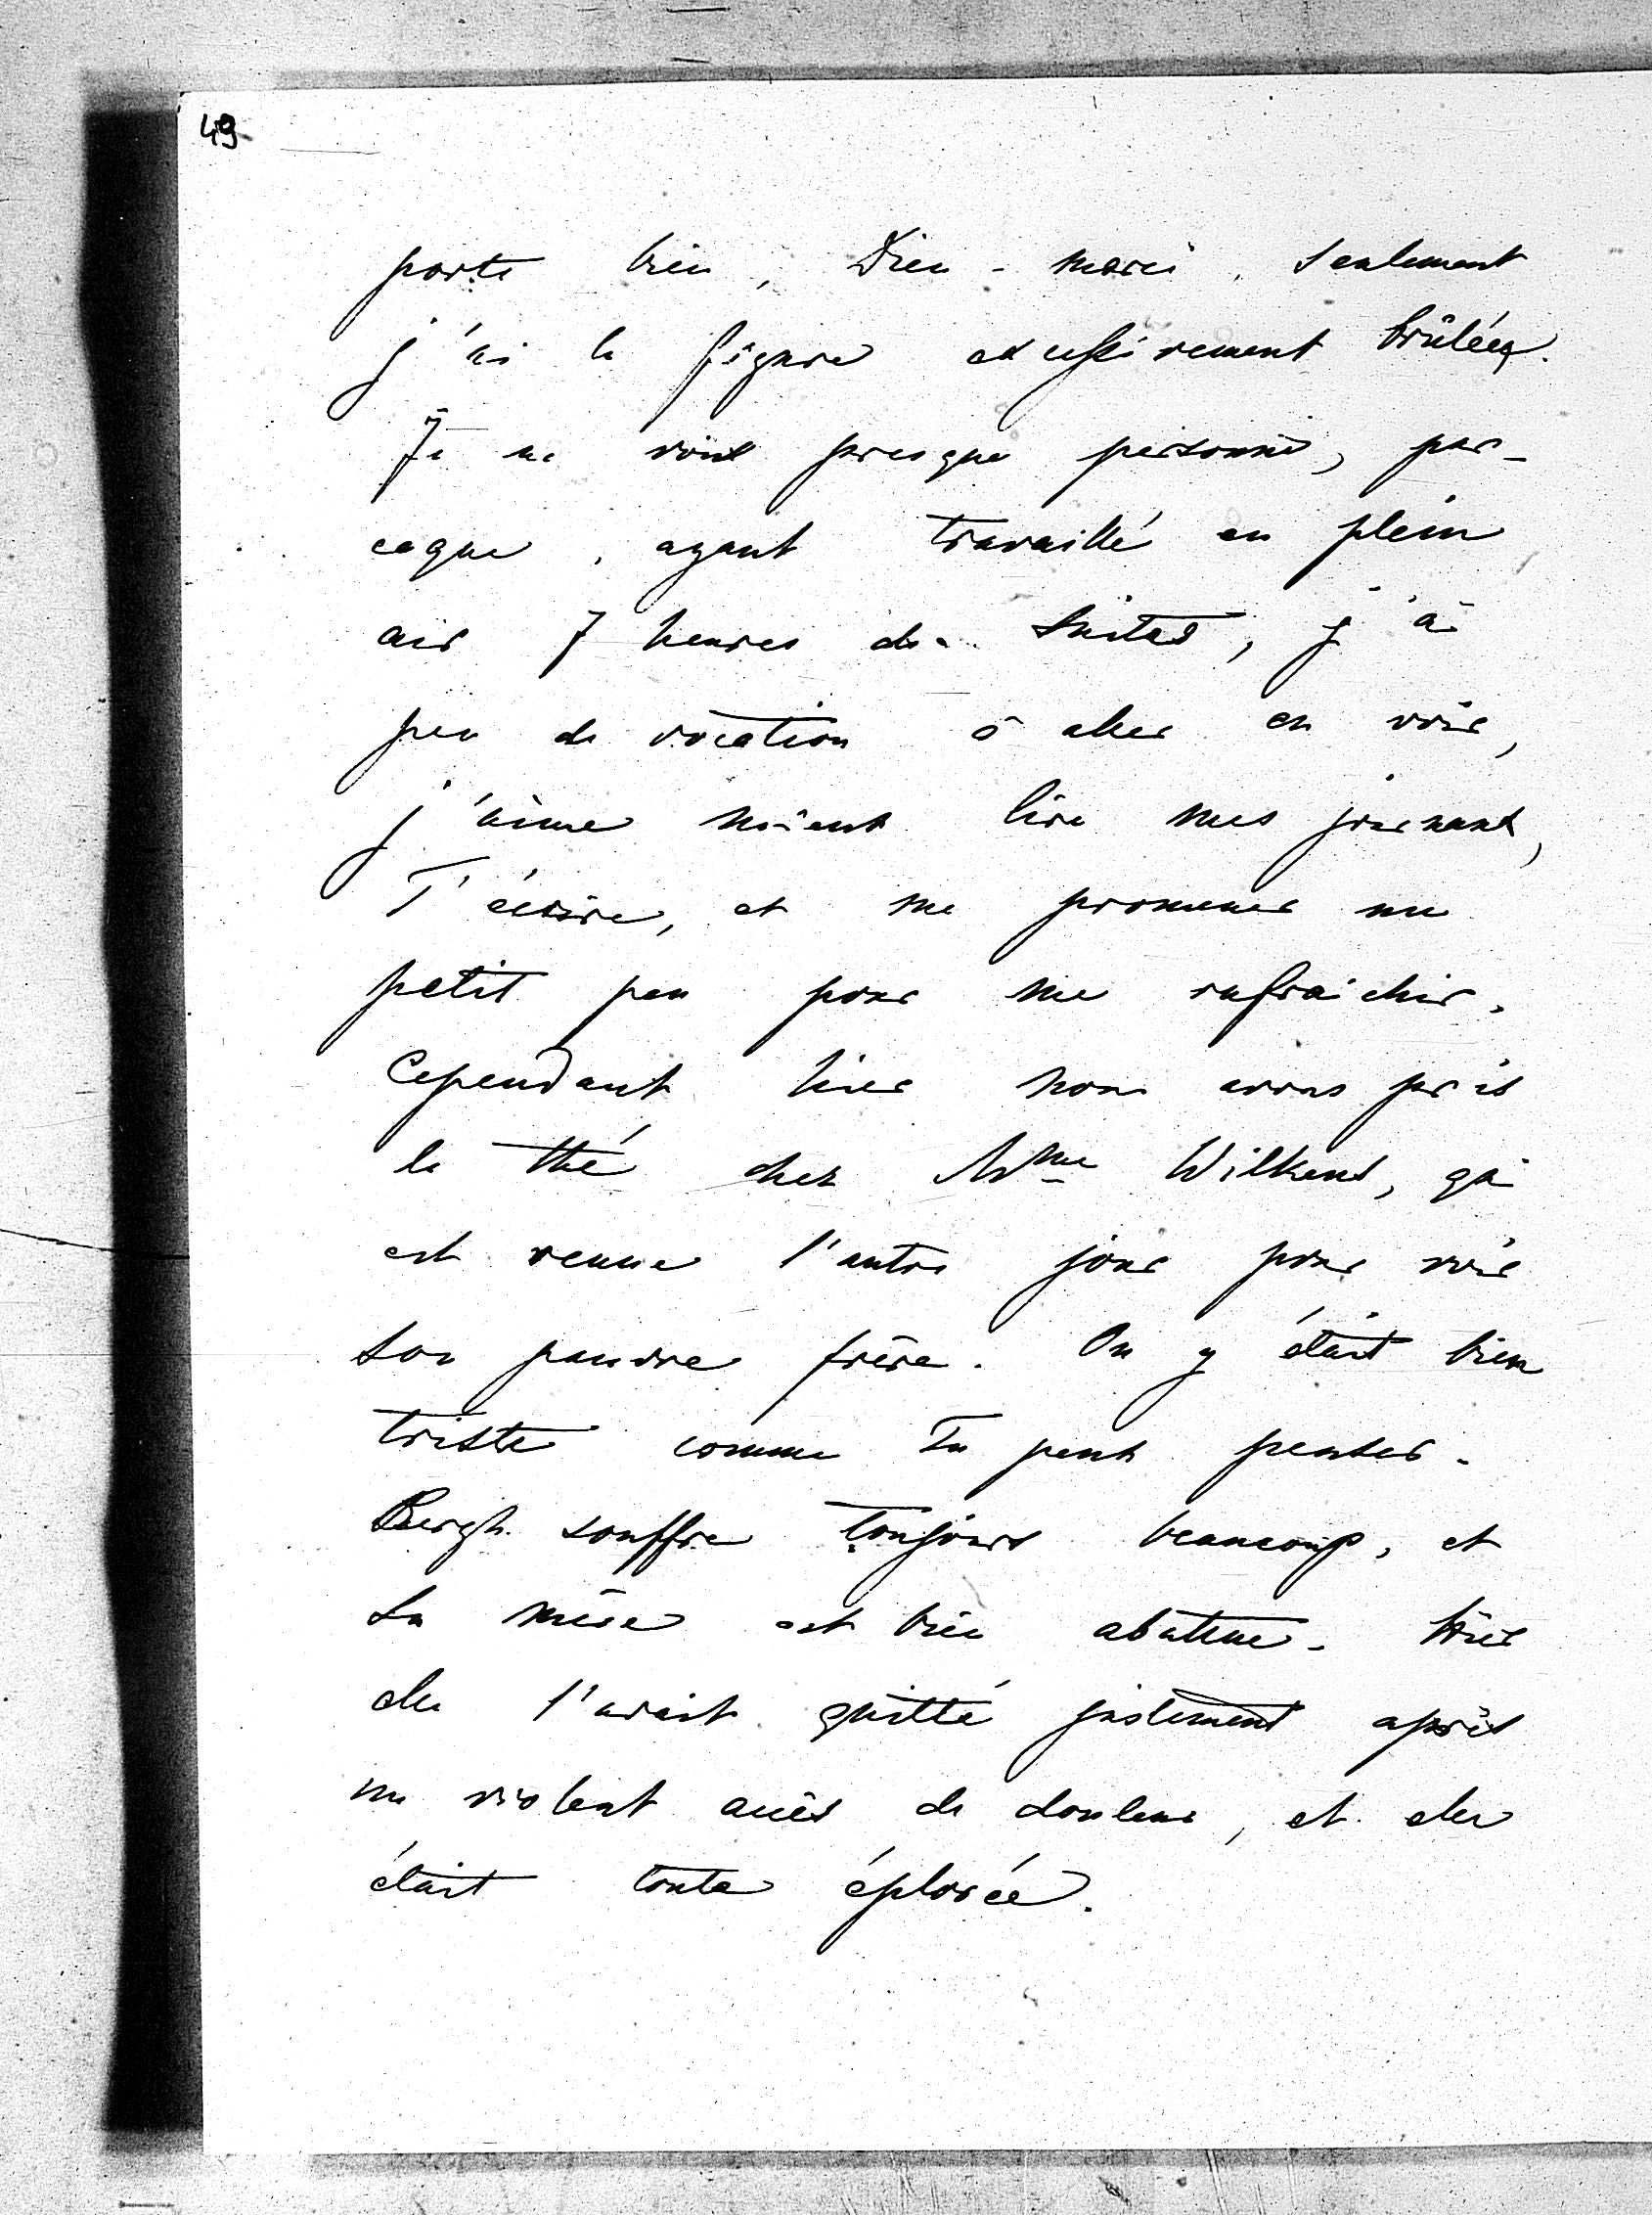 49
porte bien, Dieu-merci, seulement
j'ai la figure excessivement brûlée.
Je ne vois presque personne, par-
ceque, ayant travaillé en plein
air 7 heures de suites, j'ai
peu de vocation à aller en voir,
j'aime mieux lire mes journaux,
T'écrire, et me promener un
petit peu pour me rafraichir.
Cependant hier nous avons pris
le thé chez Mme Wilkens, qui
est venue l'autre jour pour voir
son pauvre frère. On y était bien
triste comme Tu peux penser.
Bergh souffre toujours beaucoup, et
sa mère est bien abattue. Hier
elle l'avait quitté justement après
un violent accès de douleur, et elle
était toute éplorée.